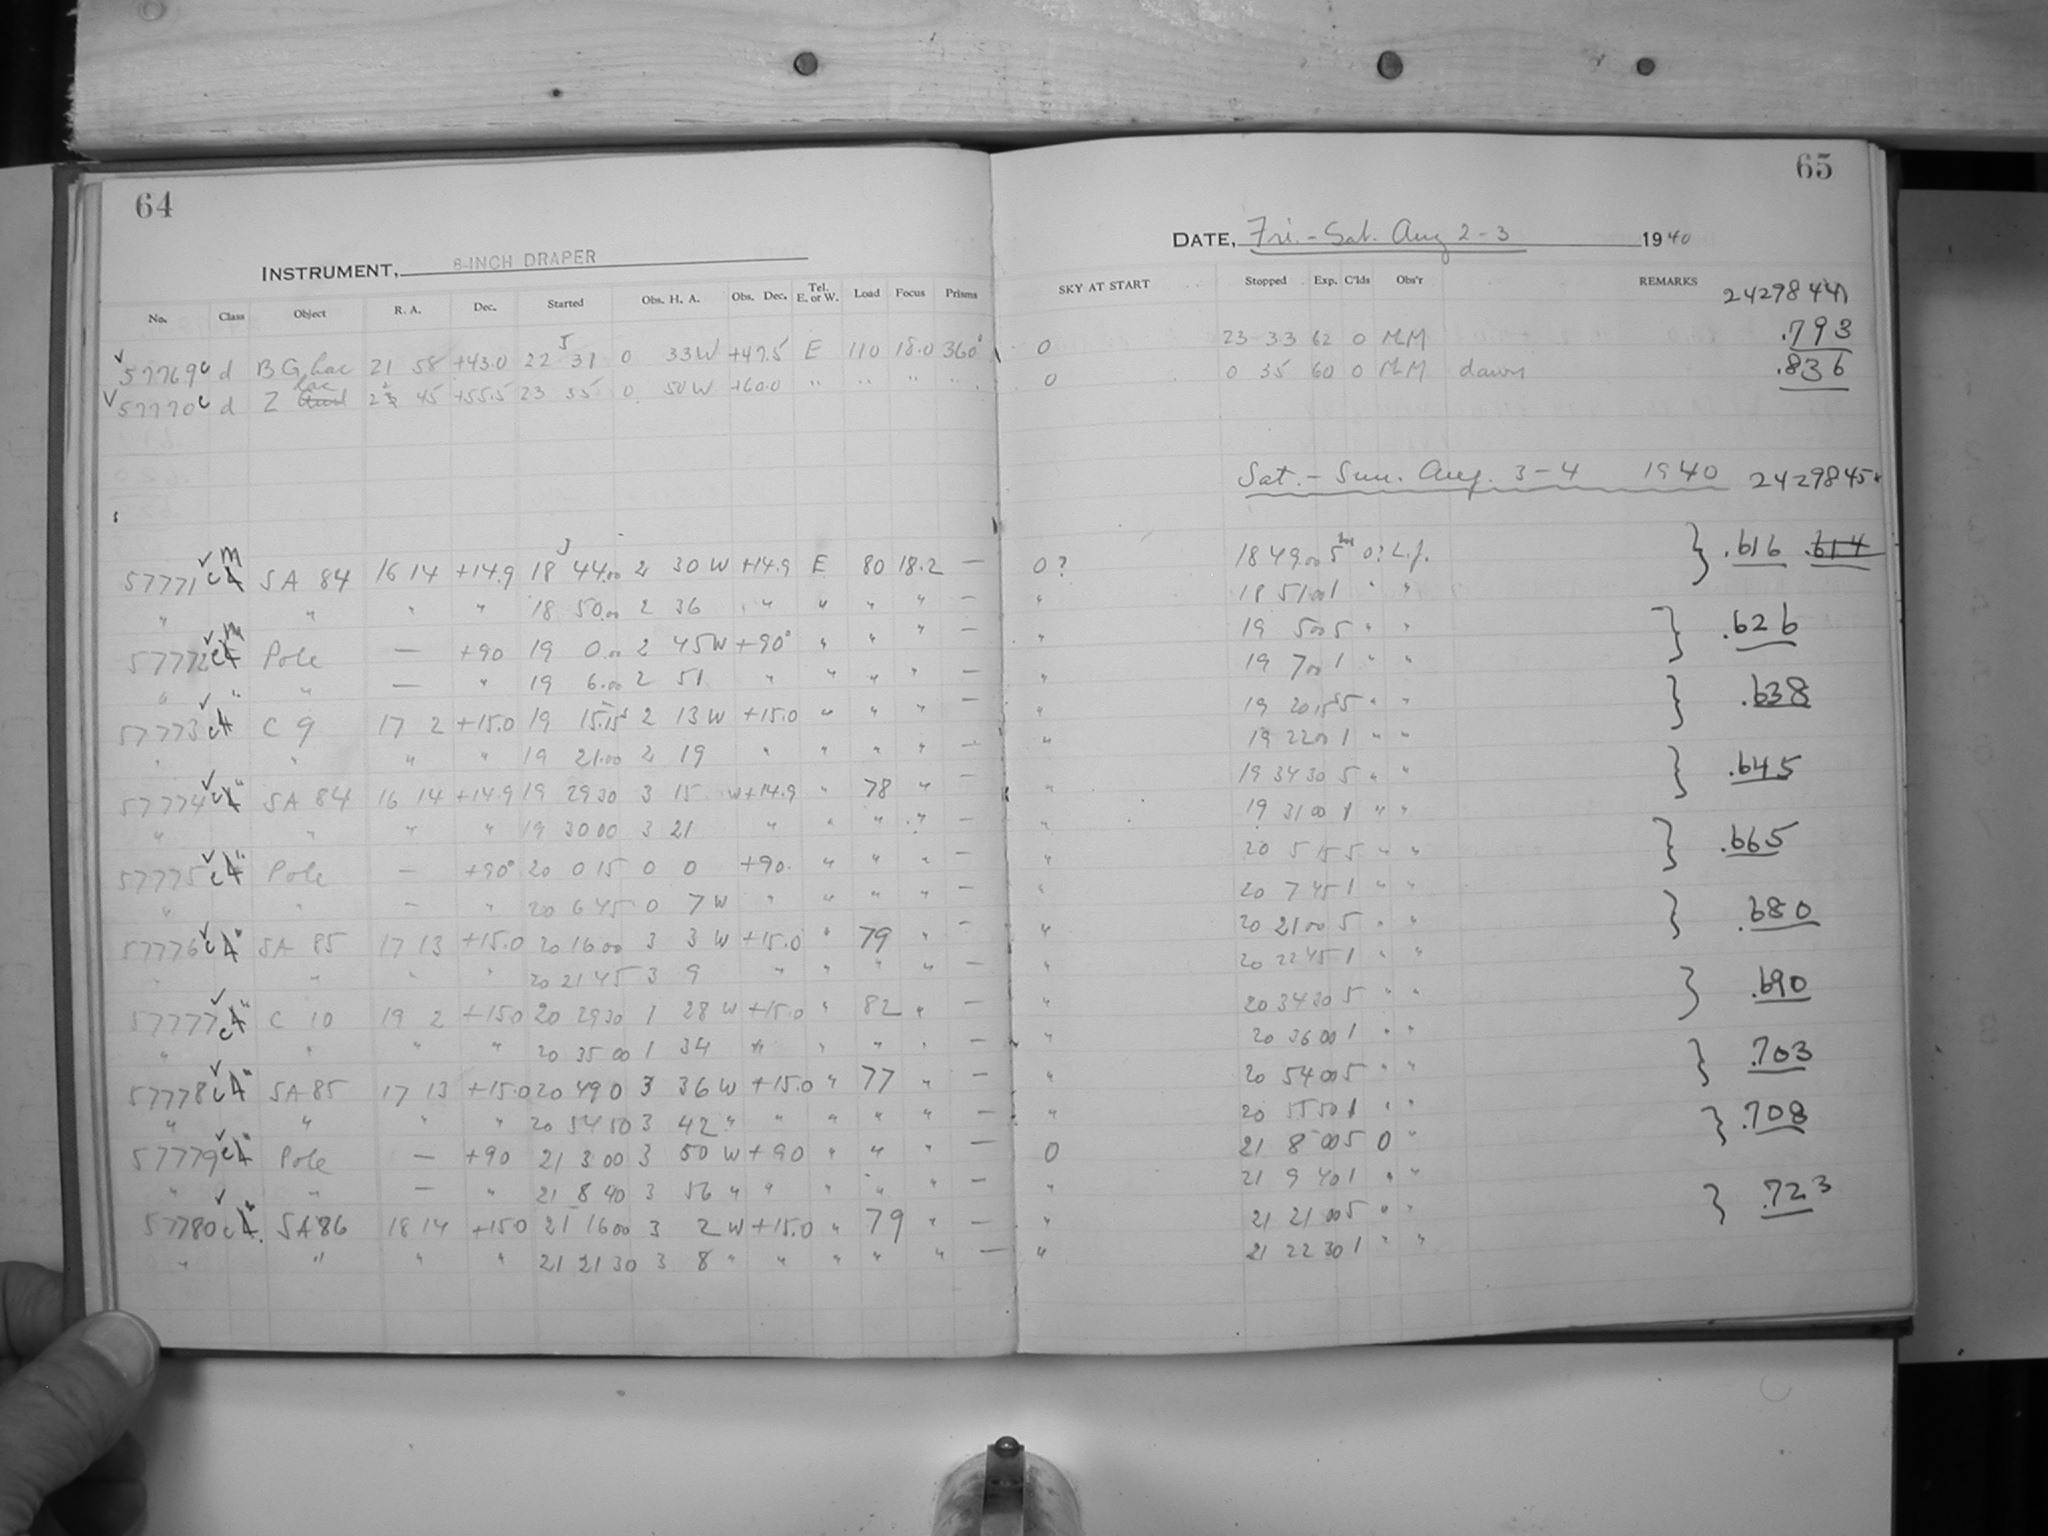 64
INSTRUMENT, 8-INCH DRAPER
No. Class Object R. A. Dec. Started Obs. H. A. Obs. Dec. Tel. E. or W. Load Focus Prisms
57769 d BG Lac 21 58 +43.0 22 31 0 33W +47.5 E 110 18.0 360°
57770 d Z Lac 45 +55.5 23 35 0 50W +60.0 " " " "
57771 SA 84 16 14 +14.9 18 44.00 2 30 W +14.9 E 80 18.2 —
" " " " 18 50.00 2 36 " " " " —
57772 Pole — +90 19 0.00 2 45W +90° " " " —
" " — " 19 6.00 2 51 " " " " —
57773 C 9 17 2 +15.0 19 15.15 2 13 W +15.0 " " " —
" " " " 19 21.00 2 19 " " " " —
57774 SA 84 16 14 +14.9 19 29 30 3 15 W +14.9 " 78 " —
" " " " 19 30 00 3 21 " " " " —
57775 Pole — +90° 20 0 15 0 0 +90. " " " —
" " — " 20 6 45 0 7 W " " " " —
57776 SA 85 17 13 +15.0 20 16 00 3 3 W +15.0 " 79 " —
" " " " 20 21 45 3 9 " " " " —
57777 C 10 19 2 +15.0 20 29 30 1 28 W +15.0 " 82 " —
" " " " 20 35 00 1 34 " " " " —
57778 SA 85 17 13 +15.0 20 49 0 3 36 W +15.0 " 77 " —
" " " " 20 54 50 3 42 " " " " " —
57779 Pole — +90 21 3 00 3 50 W +90 " " " —
" " — " 21 8 40 3 56 " " " " " —
57780 SA 86 18 14 +15.0 21 16 00 3 2 W +15.0 " 79 " —
" " " " 21 21 30 3 8 " " " " " —
65
DATE, Fri. - Sat. Aug 2 - 3 1940
SKY AT START Stopped Exp. C'lds Obs'r REMARKS
2429844
0 23 33 62 0 MM .793
0 0 35 60 0 MM dawn .836
Sat. - Sun. Aug. 3 - 4 1940 2429845
0? 18 49 00 5 0? L.J. } .616 .614
" 18 51 00 1 " "
" 19 5 00 5 " " } .626
" 19 7 00 1 " "
" 19 20 15 5 " " } .638
" 19 22 00 1 " "
" 19 34 30 5 " " } .645
" 19 31 00 1 " "
" 20 5 15 5 " " } .665
" 20 7 45 1 " "
" 20 21 00 5 " " } .680
" 20 22 45 1 " "
" 20 34 30 5 " " } .690
" 20 36 00 1 " "
" 20 54 00 5 " " } .703
" 20 55 50 1 " "
0 21 8 00 5 0 " } .708
" 21 9 40 1 " "
" 21 21 00 5 " " } .723
" 21 22 30 1 " "